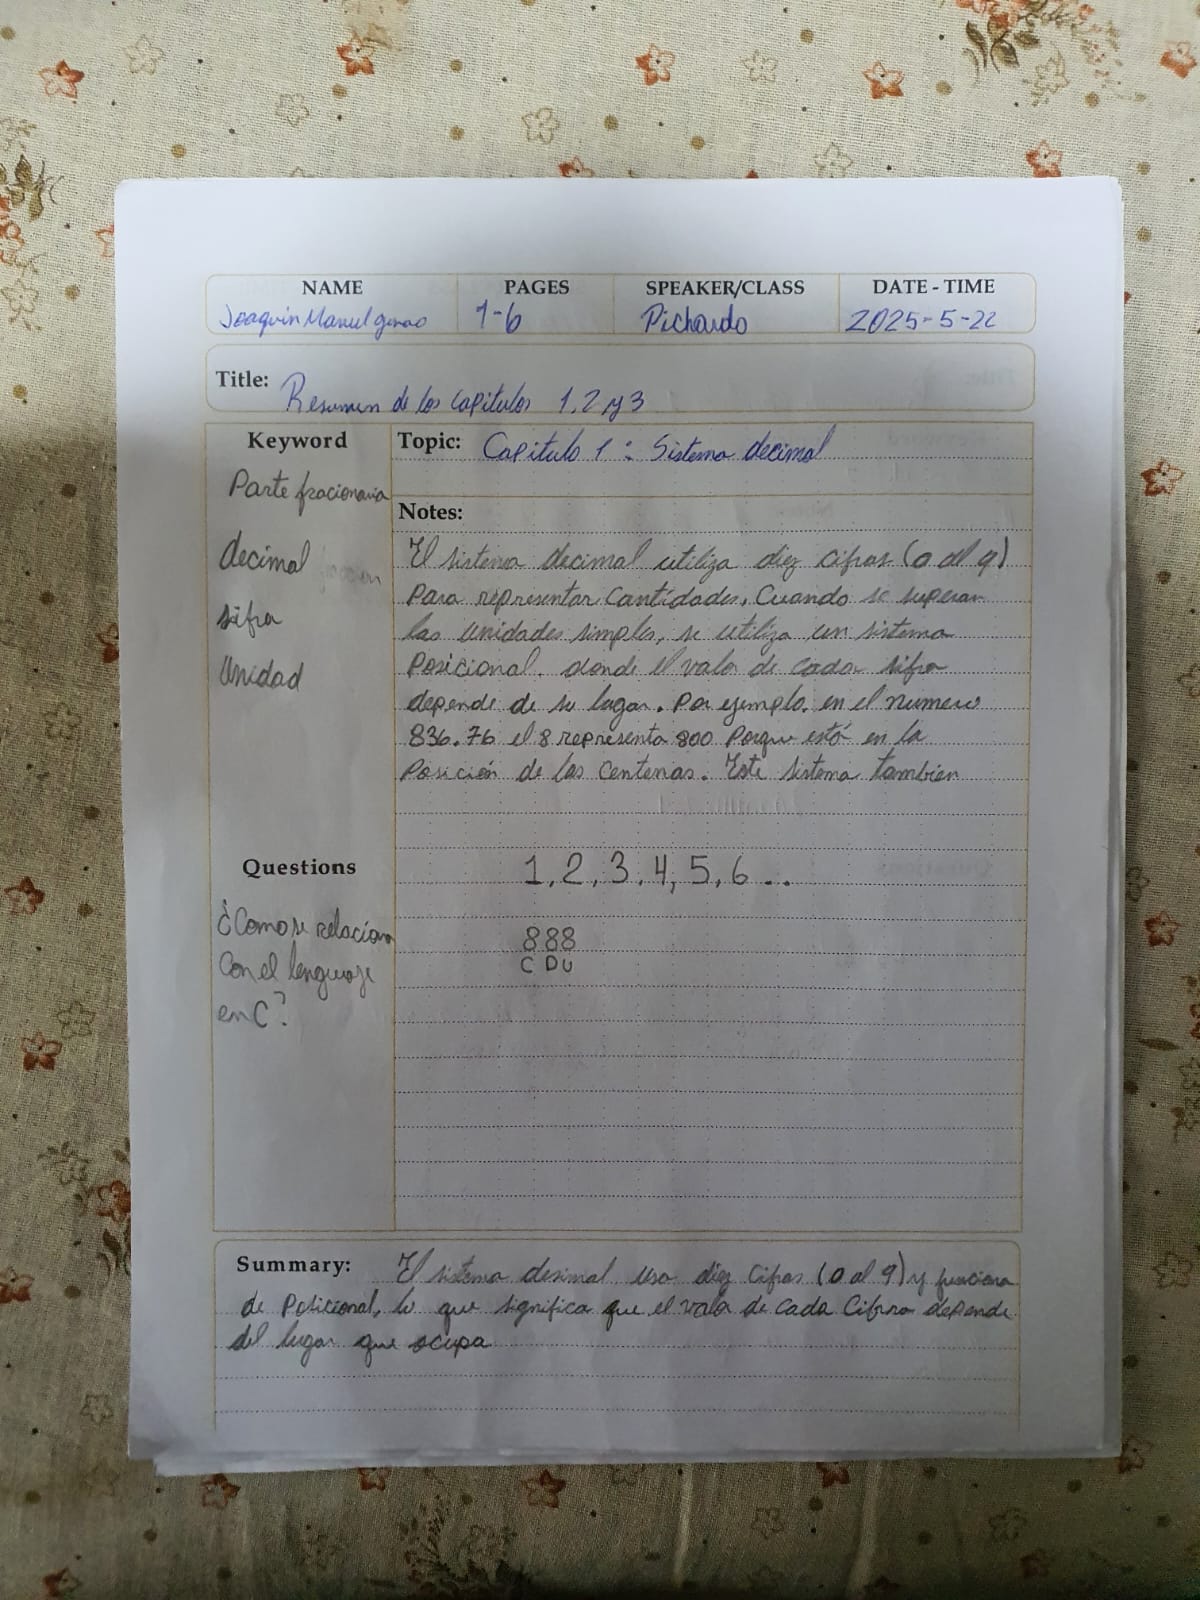 NAME PAGES SPEAKER/CLASS DATE - TIME
Joaquin Manuel 1-6 Pichardo 2025-5-22
Title: Resumen de los capitulos 1, 2 y 3
Keyword
Parte fracionaria
decimal
sifra
Unidad
Topic: Capitulo 1 : Sistema decimal
Notes:
El sistema decimal utiliza diez cifras (0 al 9)
Para representar Cantidades. Cuando se superan
las unidades simples, se utiliza un sistema
Posicional. donde el valor de cada sifra
depende de su lugar. Por ejemplo. en el numero
836.76 el 8 representa 800 Porque está en la
Posición de las Centenas. Este sistema tambien
1, 2, 3, 4, 5, 6 . .
888
C D U
Questions
¿Como se relaciona
Con el lenguaje
en C?
Summary: El sistema desimal usa diez Cifras (0 al 9) y funciona
de Posicional, lo que significa que el valor de cada Cifra depende
del lugar que ocupa